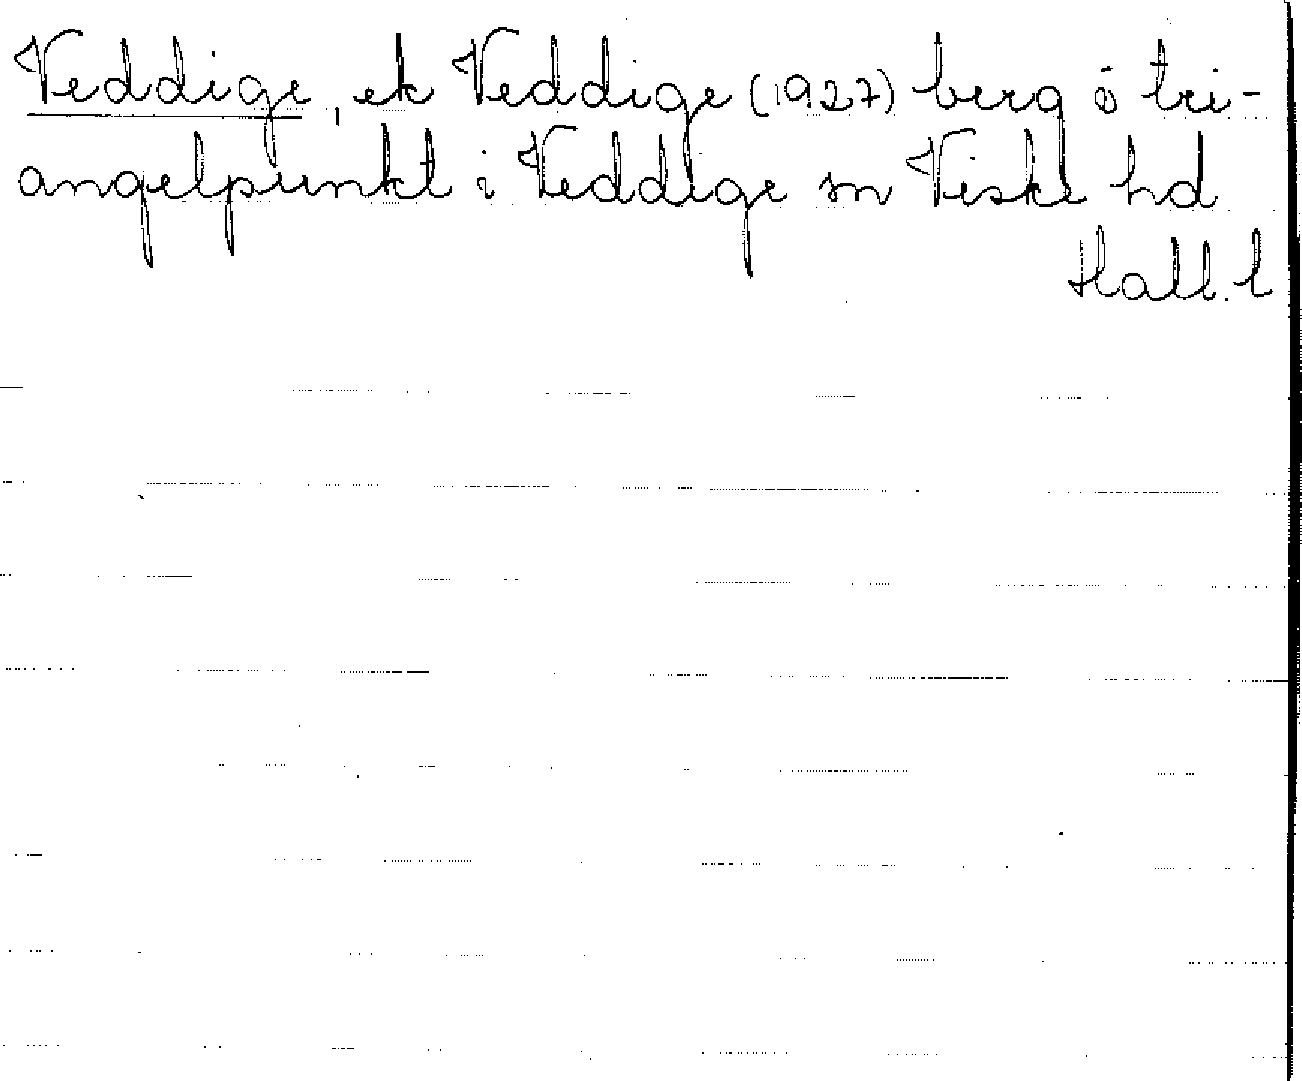 Veddige, ek Veddige (1927) berg ö tri-
angelpunkt i Veddige sn Viske hd
Hall. l